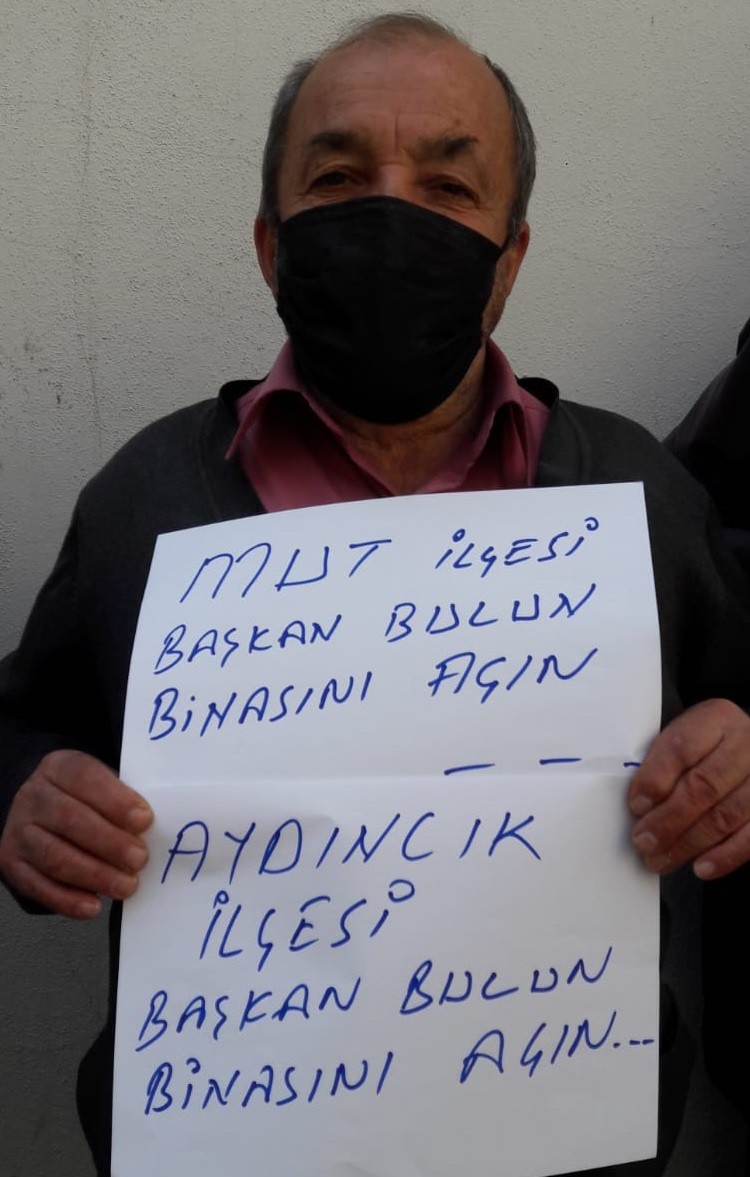 MUT İLÇESİ
BAŞKAN BULUN
BİNASINI AÇIN
_ _ _
AYDINCIK
İLÇESİ
BAŞKAN BULUN
BİNASINI AÇIN...